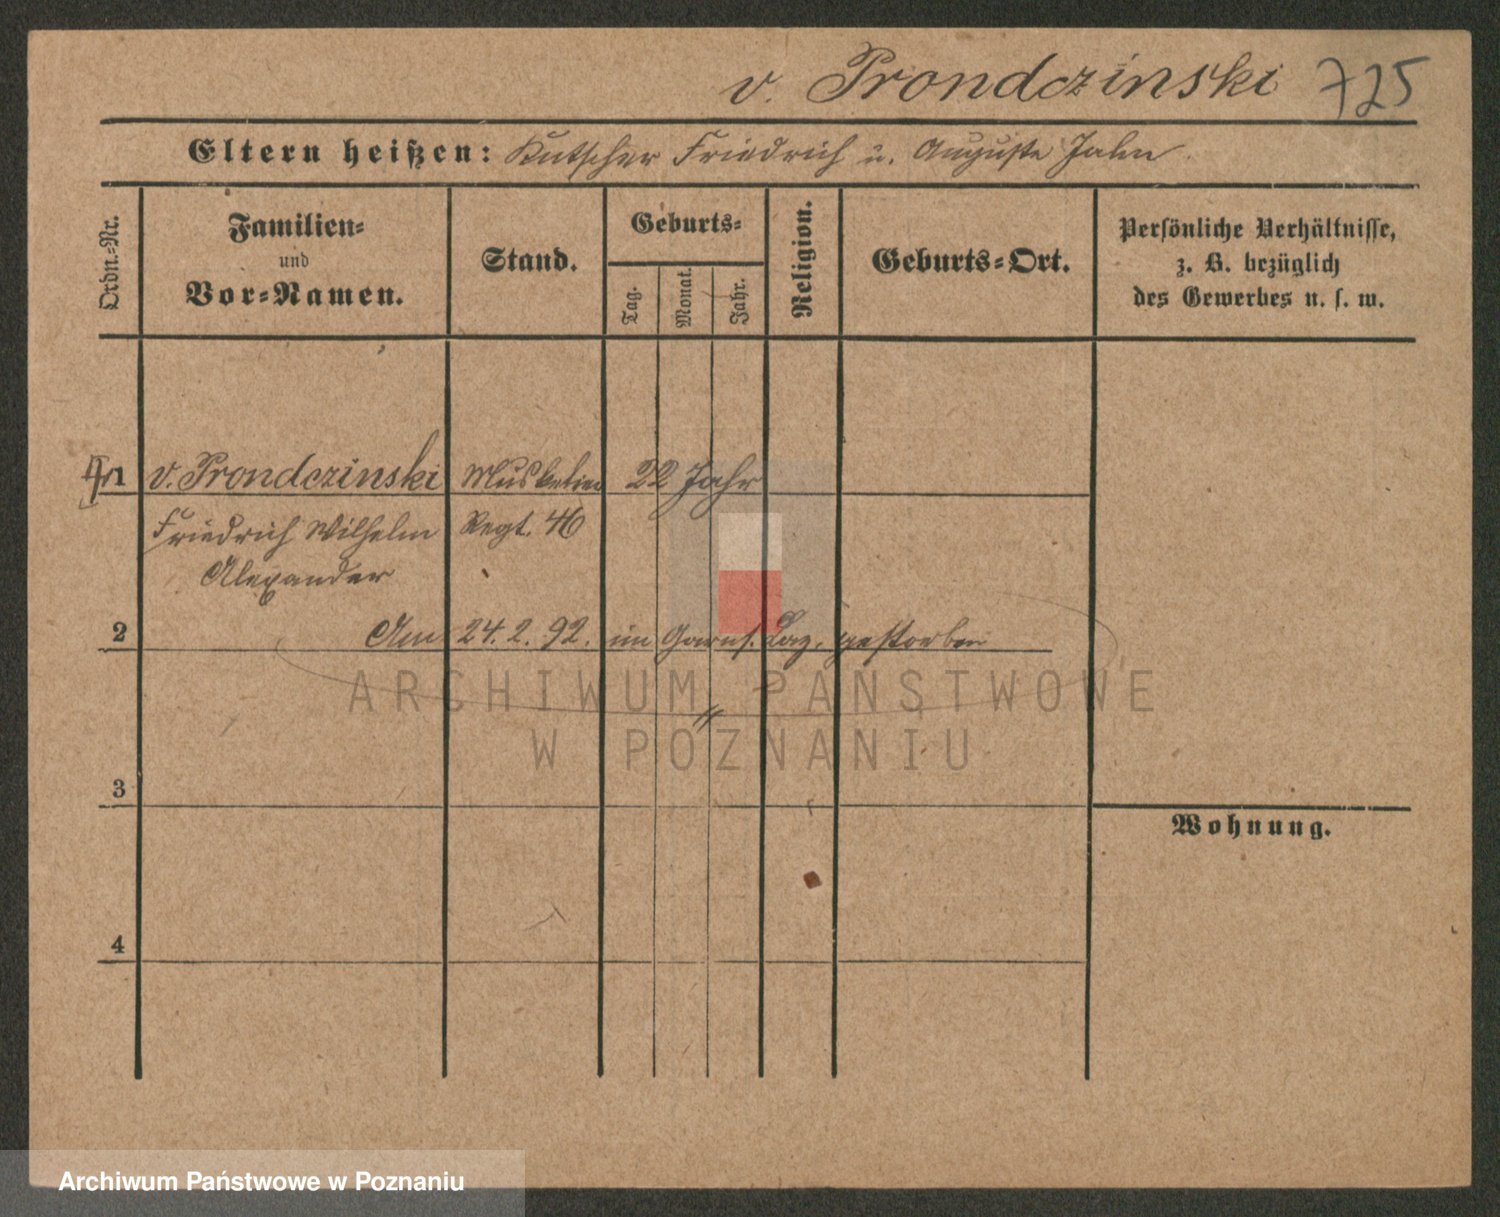 v. Prondczinski 725
Eltern heißen: Kutscher Friedrich u. Auguste Jahn
Ordn.-Nr.
Familien-
und
Vor-Namen.
Stand.
Geburts-
Tag.
Monat.
Jahr.
Religion.
Geburts-Ort.
Persönliche Verhältnisse,
z. B. bezüglich
des Gewerbes u. s. w.
1 v. Prondczinski Musketier 22 Jahr
Friedrich Wilhelm Regt. 46
Alexander
2 Am 24. 2. 92. im Garnis. Laz. gestorben
ARCHIWUM PAŃSTWOWE
W POZNANIU
3
Wohnung.
4
Archiwum Państwowe w Poznaniu